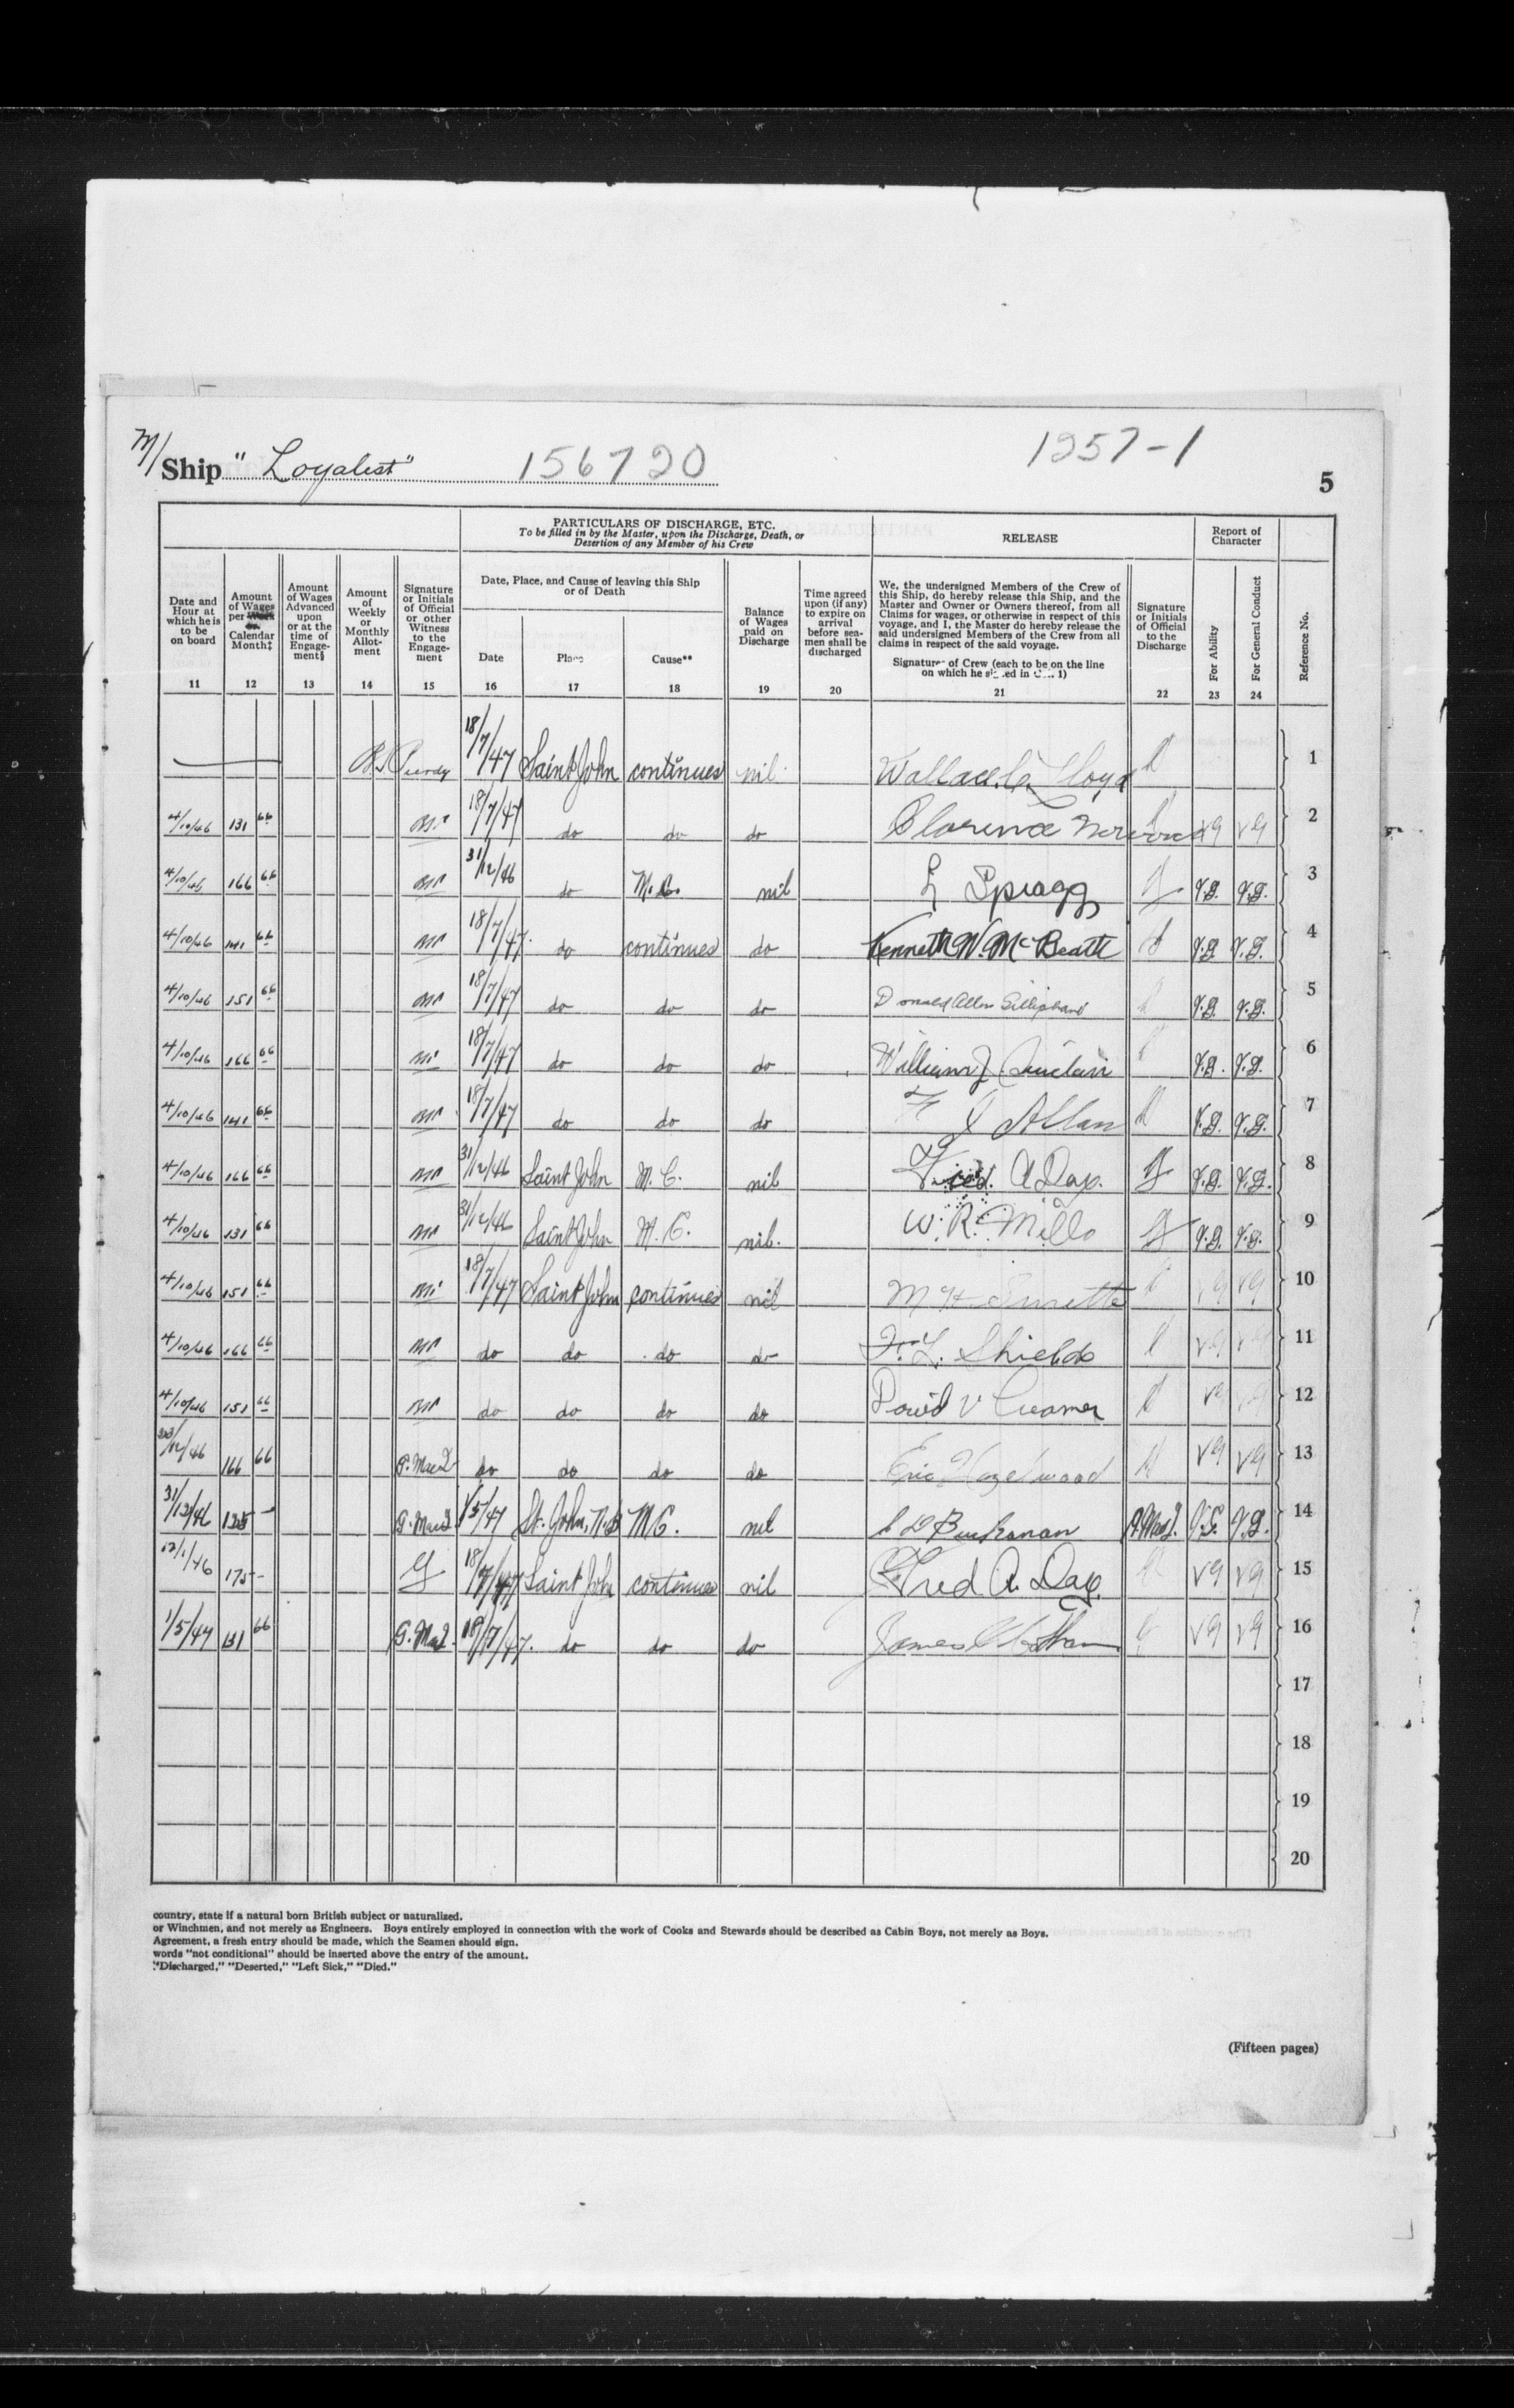 M/Ship "Loyalist" 156720 1257-1
5
PARTICULARS OF DISCHARGE, ETC.
To be filled in by the Master, upon the Discharge, Death, or
Desertion of any Member of his Crew
RELEASE
Report of
Character
Date and
Hour at
which he is
to be
on board
11
Amount
of Wages
per Week
or
Calendar
Month‡
12
Amount
of Wages
Advanced
upon
or at the
time of
Engage-
ment§
13
Amount
of
Weekly
or
Monthly
Allot-
ment
14
Signature
or Initials
of Official
or other
Witness
to the
Engage-
ment
15
Date, Place, and Cause of leaving this Ship
or of Death
Date
16
Place
17
Cause**
18
Balance
of Wages
paid on
Discharge
19
Time agreed
upon (if any)
to expire on
arrival
before sea-
men shall be
discharged
20
We, the undersigned Members of the Crew of
this Ship, do hereby release this Ship, and the
Master and Owner or Owners thereof, from all
Claims for wages, or otherwise in respect of this
voyage, and I, the Master do hereby release the
said undersigned Members of the Crew from all
claims in respect of the said voyage.
Signatures of Crew (each to be on the line
on which he signed in Col. 1)
21
Signature
or Initials
of Official
to the
Discharge
22
For Ability
23
For General Conduct
24
Reference No.
Purdy 18/7/47 Saint John continues nil Wallace C. Lloyd 1
4/10/46 131 66 18/7/47 do do do Clarence vg vg 2
4/10/46 166 66 31/12/46 do M.C. nil L Spragg V.G. V.G. 3
4/10/46 141 66 18/7/47 do continues do Kenneth W. McBeath V.G. V.G. 4
4/10/46 151 66 18/7/47 do do do Donald Allen Silliphant V.G. V.G. 5
4/10/46 166 66 18/7/47 do do do William J. Sinclair V.G. V.G. 6
4/10/46 141 66 18/7/47 do do do Allan V.G. V.G. 7
4/10/46 166 66 31/12/46 Saint John M.C. nil Fred. A Day. V.G. V.G. 8
4/10/46 131 66 31/12/46 Saint John M.C. nil. W. R. Mills V.G. V.G. 9
4/10/46 151 66 18/7/47 Saint John continues nil M H vg vg 10
4/10/46 166 66 do do do do F. L. Shields vg vg 11
4/10/46 151 66 do do do do David V Creamer vg vg 12
/12/46 166 66 do do do do Eric Hazelwood vg vg 13
31/12/46 135 - 1/5/47 St. John, N.B M.C. nil Buchanan V.G. V.G. 14
12/1/46 175 - 18/7/47 Saint John continues nil Fred A. Day. vg vg 15
1/5/47 131 66 18/7/47. do do do James vg vg 16
17
18
19
20
country, state if a natural born British subject or naturalized.
or Winchmen, and not merely as Engineers. Boys entirely employed in connection with the work of Cooks and Stewards should be described as Cabin Boys, not merely as Boys.
Agreement, a fresh entry should be made, which the Seamen should sign.
words "not conditional" should be inserted above the entry of the amount.
"Discharged," "Deserted," "Left Sick," "Died."
(Fifteen pages)